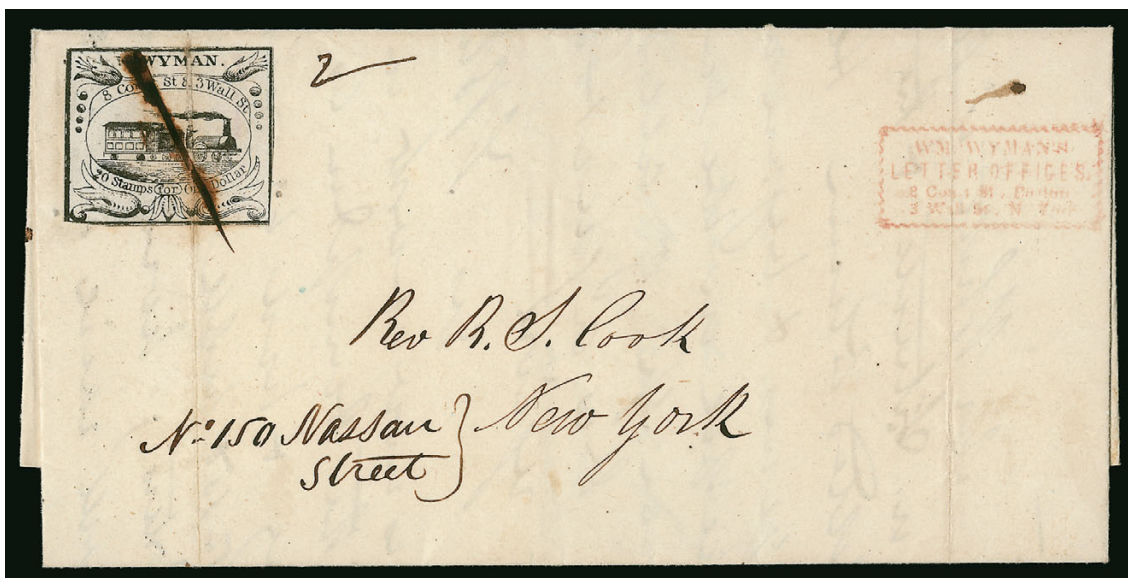 WYMAN.
8 Court St & 3 Wall St.
20 Stamps for One Dollar
2
WM. WYMAN'S
LETTER OFFICES.
8 Court St., Boston
3 Wall St., N. York
Rev R. S. Cook
No. 150 Nassau
Street
New York